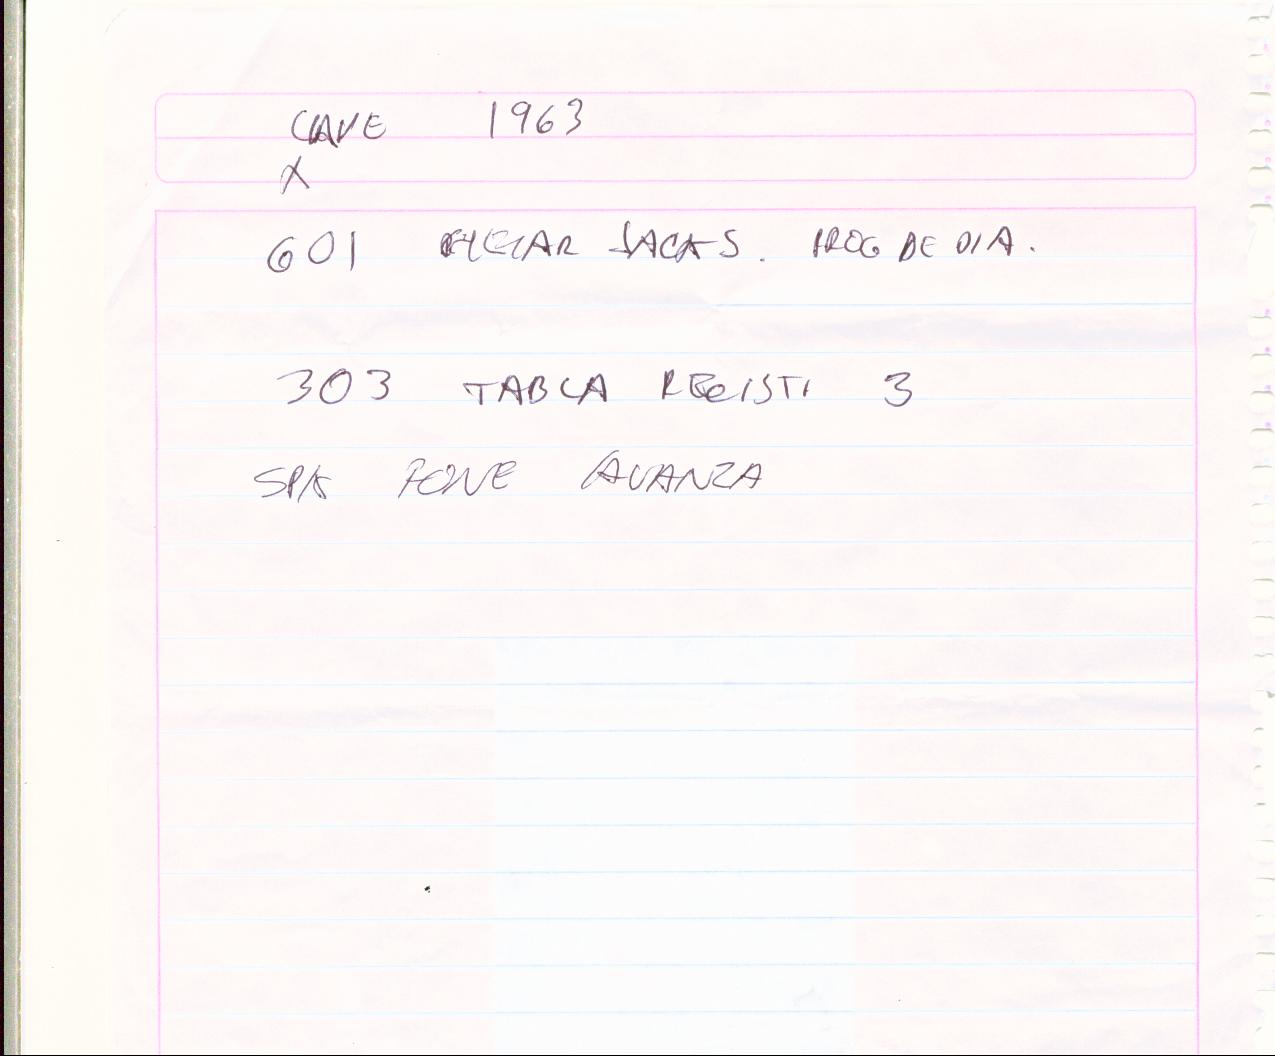 CLAVE 1963
X
601 JACKS. PROG DE DIA.
303 TABLA REGISTI 3
SPA PONE AVANZA